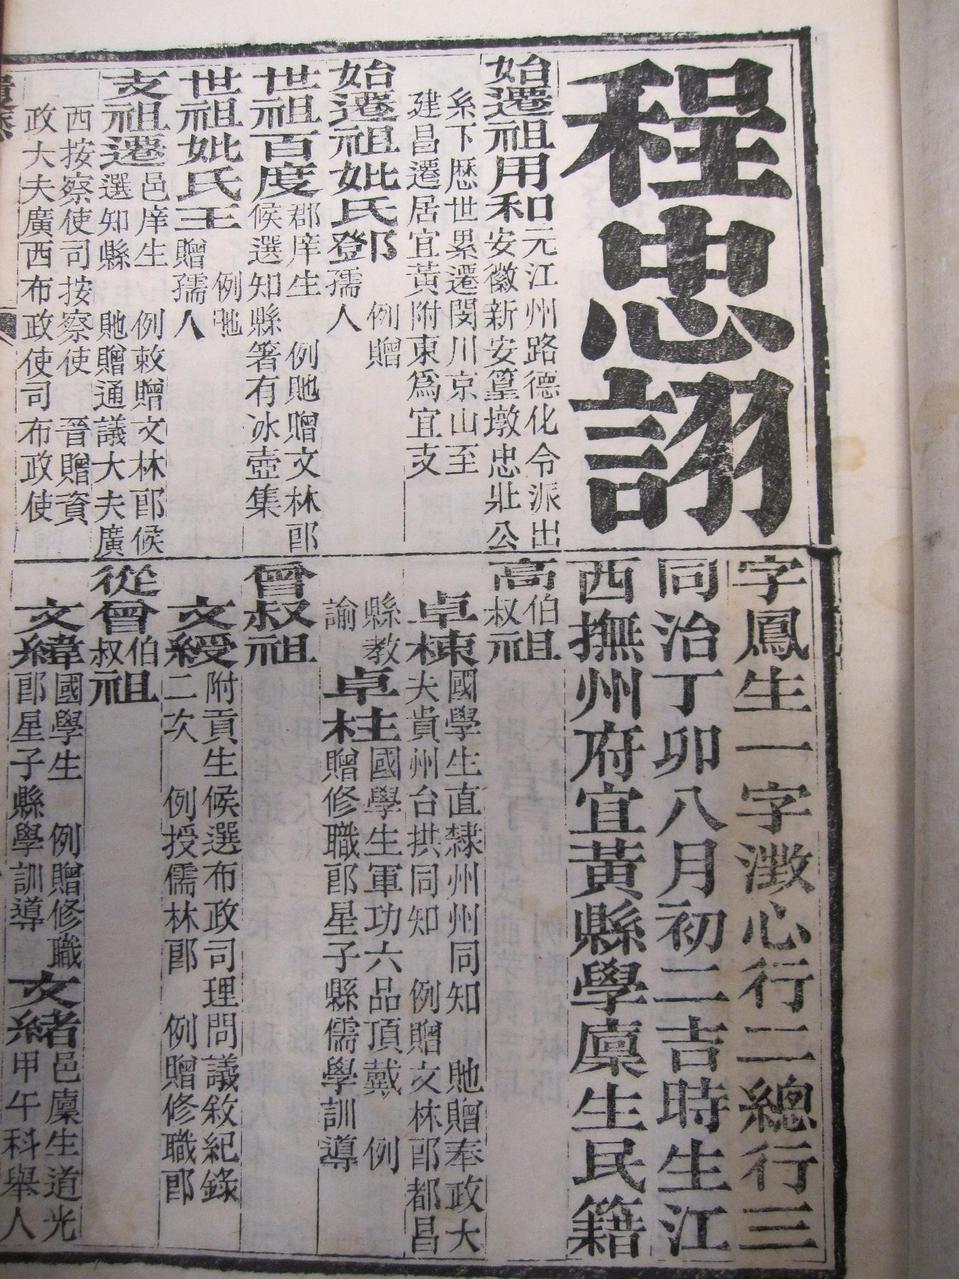 程忠詡
字鳳生一字澂心行二總行三
同治丁卯八月初二吉時生江
西撫州府宜黃縣學廩生民籍
始遷祖用和元江州路德化令派出
安徽新安篁墩忠壯公
系下歷世累遷閩川京山至
建昌遷居宜黃附東爲宜支
始遷祖妣氏鄧例贈
孺人
世祖百度郡庠生 例貤贈文林郎
候選知縣著有冰壺集
世祖妣氏王例貤
贈孺人
支祖遷邑庠生 例敕贈文林郎候
選知縣 貤贈通議大夫廣
西按察使司按察使 晉贈資
政大夫廣西布政使司布政使
高伯叔祖
卓棟國學生直隸州州同知 貤贈奉政大
夫貴州台拱同知 例贈文林郎都昌
縣教
諭
卓柱國學生軍功六品頂戴 例
贈修職郎星子縣儒學訓導
曾叔祖
文綬附貢生候選布政司理問議敘紀錄
二次 例授儒林郎 例贈修職郎
從曾伯叔祖
文緯國學生 例贈修職
郎星子縣學訓導
文緒邑廩生道光
甲午科舉人